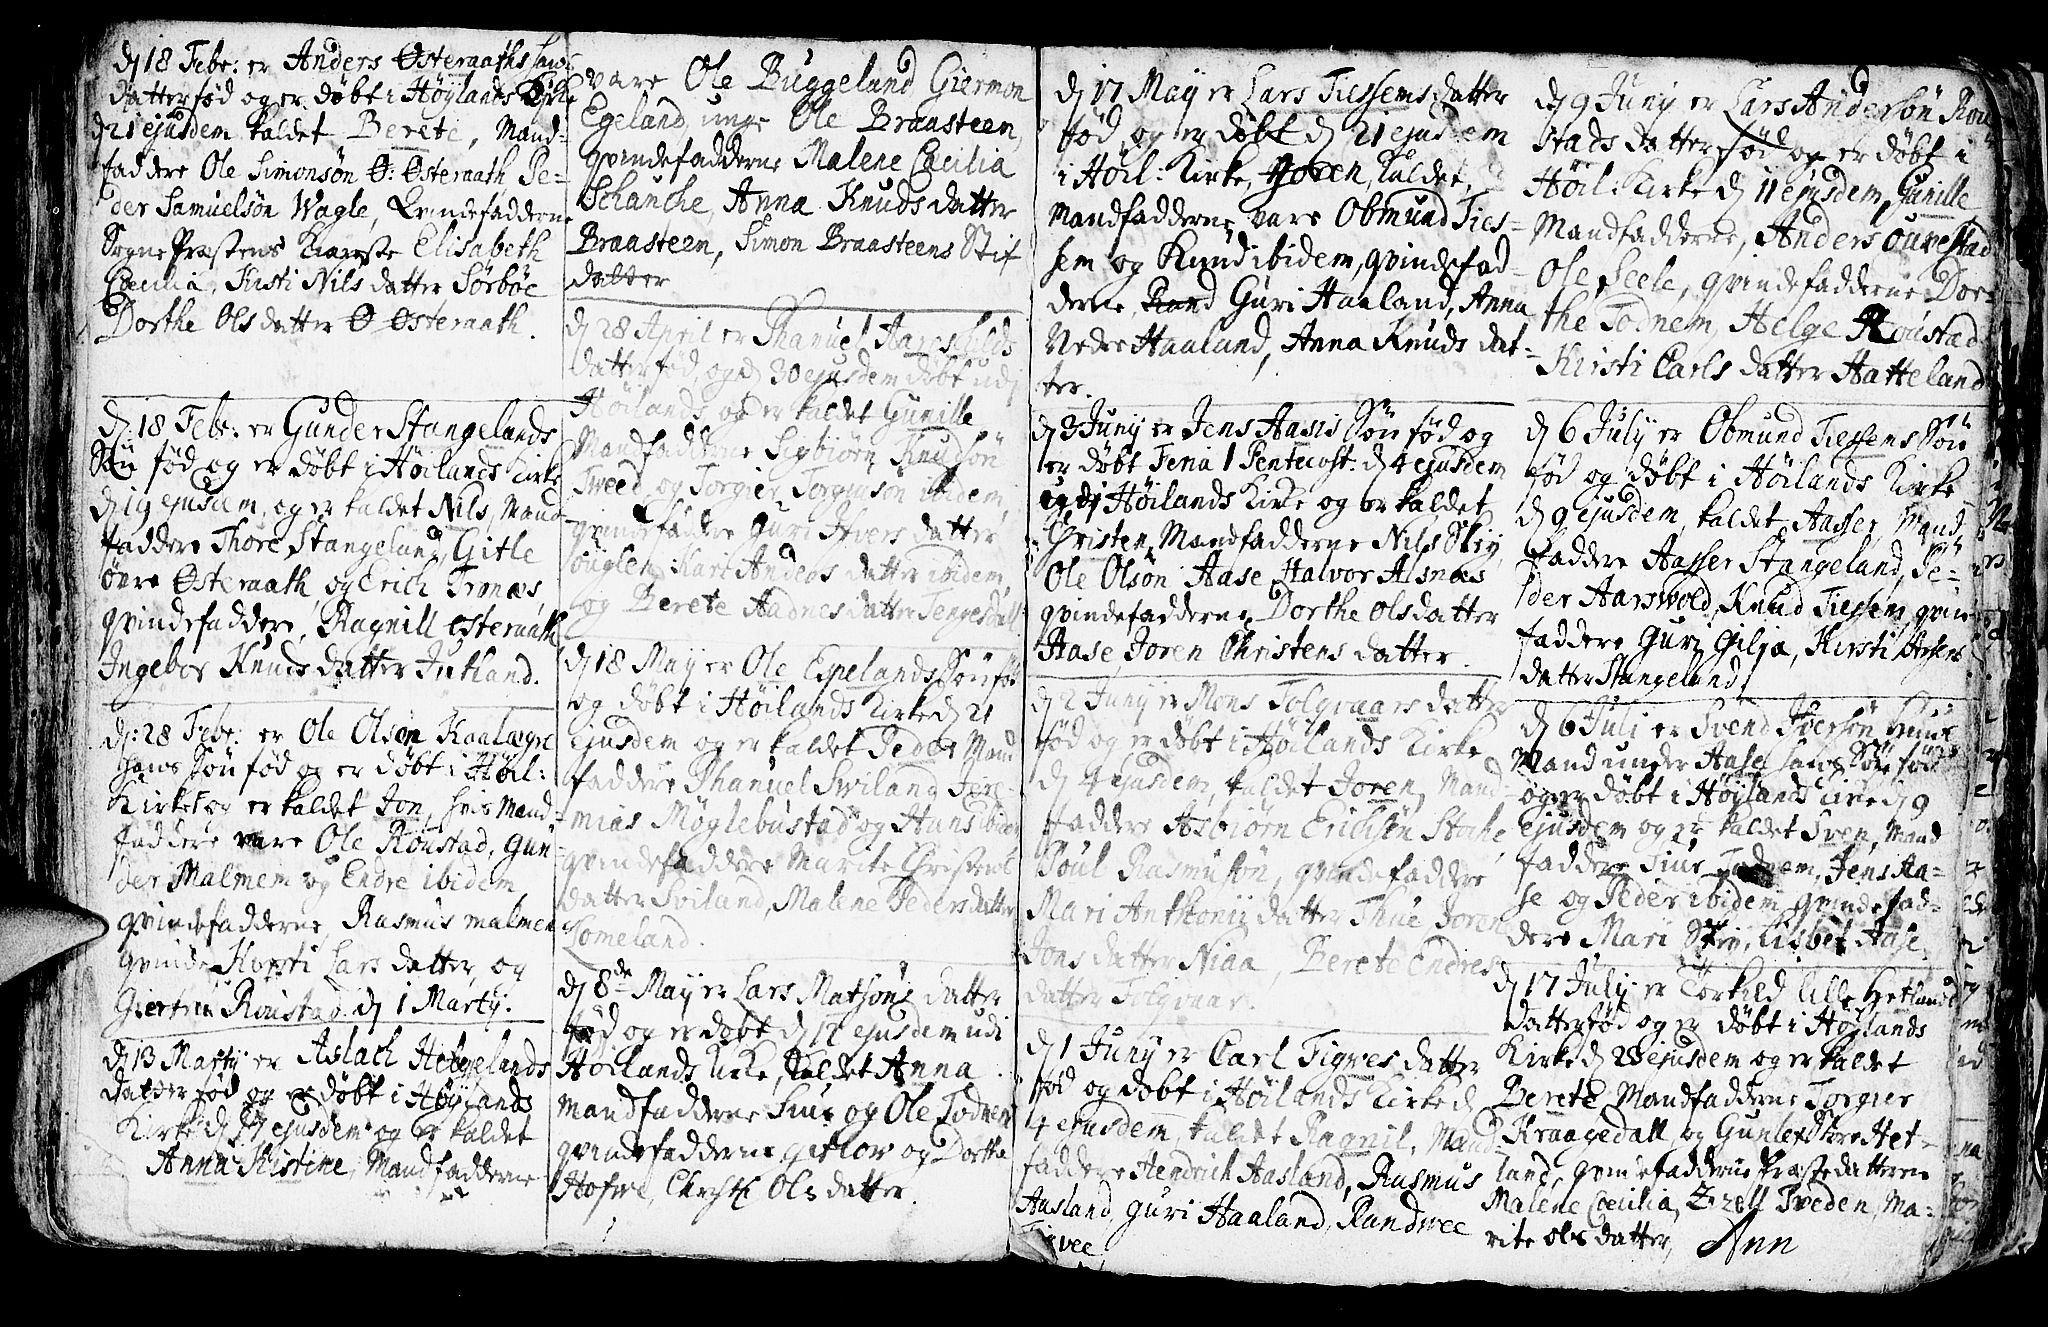 dj 18 Febr: er Anders Østeraaths
datter fød og er døbt i Höylands Kirke
dj 21 ejusdem kaldet Berete, Mand-
faddere Ole Simonsön Ø: Østeraath, Pe-
der Samuelsön Wagle, Qvindefadderne
Sogne Præstens Kiæreste Elisabeth
Cæcilia, Kisti Nils datter Sörböe
Dorthe Ols datter Ø Østeraath.
dj: 18 Febr: er Gunder Stangelands
Sön fød og er döbt i Höilands Kirke
dj 19 ejusdem, og er kaldet Nils, Mand-
faddere Thore Stangeland, Gitle
övre Østeraath og Erich Tronæs
qvindefaddere, Ragnill Østeraath
Ingebor Knuds datter Jutland.
dj: 28 Febr: er Ole Olsön Kaalægre
hans Sön fød og er döbt i Höil:
Kirke og er kaldet Jon, hvis Mand-
faddere vare Ole Röustad, Gun
der Malmem og Endre ibidem
qvindefadderne, Rasmus malmen
qvinde Kirsti Lars datter, og
Giertru Röustad. dj 1 Marty.
dj 13 Marty er Aslach Helgelands
datter fød og er döbt i Höylands
Kirke dj 17 ejusdem og er kaldet
Anna Kistine, Mandfadderne
vare Ole Buggeland Giermon
Egeland, unge Ole Braasteen,
qvindefadderne Malene Cæcilia
Schanche, Anna Knuds datter
Braasteen, Simon Braasteens Stif
datter
dj 28 April er Phanuel Aareskilds
datter fød, og dj 30 ejusdem döbt udj
Höilands og er kaldet Gunille
Mandfadderne Sigbiörn Knudsön
Tweed og Torgier Torgiersön ibidem,
qvindefaddere Guri Ivers datter
Kari Anders datter ibidem,
og Berete Aadnes datter Tengesdall
dj 18 May er Ole Espelands Sön fød
og døbt i Höilands Kirke dj 21
ejusdem og er kaldet Peder Mand
faddere Phanuel Swiland Jere-
mias Möglebustad og Hans ibidem
qvindefaddere Marite Christens
datter Sviland, Malene Peders datter
Lomeland.
dj 8de May er Lars Matsöns datter
fød og er døbt dj 17 ejusdem udi
Höilands Kirke, kaldet Anna
mandfadderne Siur og Ole Todnem
qvindefadderne Gitlor og Dorthe
Hofwe, Chrsti Ols datter.
dj 17 May er Lars Tiessems datter
fød og er döbt dj 21 ejusdem
i Höil: Kirke, Joren, kaldet,
mandfadderne vare Obmund Ties-
sem og Knud ibidem, qvindefad-
derne Rand Guri Haaland, Anna
Nedre Haaland, Anna Knuds dat-
ter.
dj 3 Juny er Jens Aases Sön fød og
er döbt Feria 1 Pentecost: dj 4 ejusdem
udj Höilands Kirke og er kaldet
Christen, Mandfadderne Nils Skey
Ole Olsön Aase Halvor Alsnæs
qvindefadderne Dorthe Olsdatter
Aase Joren Christens datter.
dj 2 Juny er Mons Folgvaars datter
fød og er døbt i Höilands Kirke
dj 4 ejusdem, kaldet Joren, Mand-
faddere Asbiörn Erichsön Stoche,
Poul Rasmusön, qvindefaddere
Mari Anthonii datter Thue Joren
Jons datter Niaa, Berete Endres
datter Folgvaar.
dj 1 Juny er Carl Tigves datter
fød og döbt i Höilands Kirke dj
4 ejusdem, kaldet Ragnil, Mand-
faddere Hendrich Aasland, Rasmus
Aasland, Guri Haaland, Randwee
Tigvee
dj 9 Juny er Lars Andersön Röu
stads datter fød og er döbt i
Höil: Kirke dj 11 ejusdem, Gunille
Mandfadderne, Anders Ouvestad
Ole Seele, qvindefadderne Dor-
the Todnem, Helge Röustad
Kirsti Carls datter Hatteland
dj 6 July er Obmund Tiessens Sön
fød og døbt i Höilands Kirke
dj 9 ejusdem, kaldet Aasser, Mand
faddere Aasser Stangeland, Pe-
der Aarswold, Knud Tiessem, qvin
faddere Guri Gilja, Kirsti Assers
datter Stangeland
dj 6 Juli er Svend Iversön
Mand under Aase hans Sön fød
og er döbt i Höylands Kirke dj 9
ejusdem og er kaldet Sven, Mand
faddere Siur Todnem, Jens Aa-
se og Peder ibidem qvindefad-
dere Mari Skey, Lisbet Aase.
dj 17 July er Torkild lille Hetlands
datter fød og er döbt i Höylands
Kirke dj 23 ejusdem og er kaldet
Berete, Mandfadderne Torgier
Kraagedall, og Gunlef Store Het-
land, qvindefadderne Præstedatteren
Malene Cæcilia, Zezell Tveden, Ma-
rite Ols datter, Ann